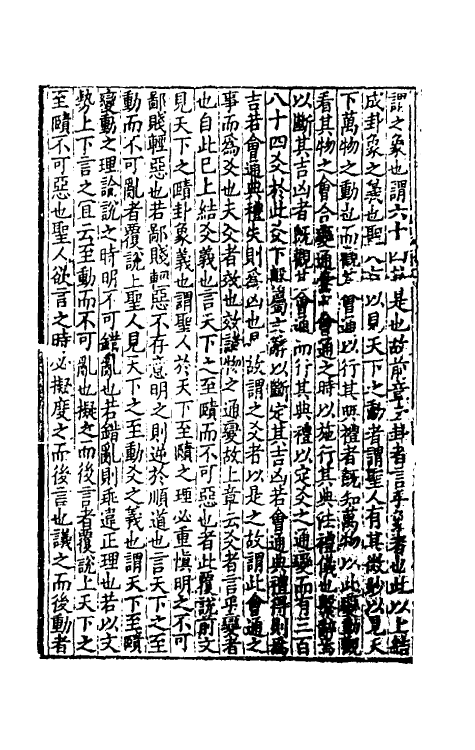 謂之象也謂六十四卦是也故前章云卦者言乎象者也此以上結
成卦象之義也聖人有以見天下之動者謂聖人有其微妙以見天
下萬物之動也而觀其會通以行其典禮者既知萬物以此變動觀
看其物之會合變通當此會通之時以施行其典法禮儀也繫辭焉
以斷其吉凶者既觀其會通而行其典禮以定爻之通變而有三百
八十四爻於此爻下繫屬文辭以斷定其吉凶若會通典禮得則為
吉若會通典禮失則為凶也是故謂之爻者以是之故謂此會通之
事而為爻也夫爻者效也效諸物之通變故上章云爻者言乎變者
也自此已上結爻義也言天下之至賾而不可惡也者此覆說前文
見天下之賾卦象義也謂聖人於天下至賾之理必重慎明之不可
鄙賤輕惡也若鄙賤輕惡不存意明之則逆於順道也言天下之至
動而不可亂者覆說上聖人見天下之至動爻之義也謂天下至賾
變動之理論說之時明不可錯亂也若錯亂則乖違正理也若以文
勢上下言之宜云至動而不可亂也擬之而後言者覆說上天下之
至賾不可惡也聖人欲言之時必擬度之而後言也議之而後動者